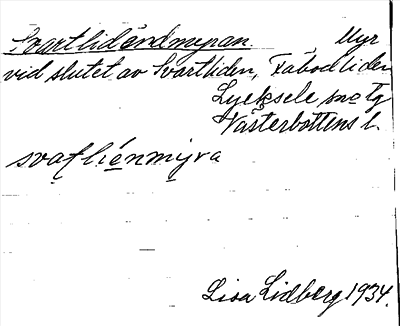 Svartlidändmyran. Myr
vid slutet av Svartliden, Fäbodliden
Lycksele sn
Västerbottens l.
svaƭli̯énmỵra
Lisa Lidberg 1934.